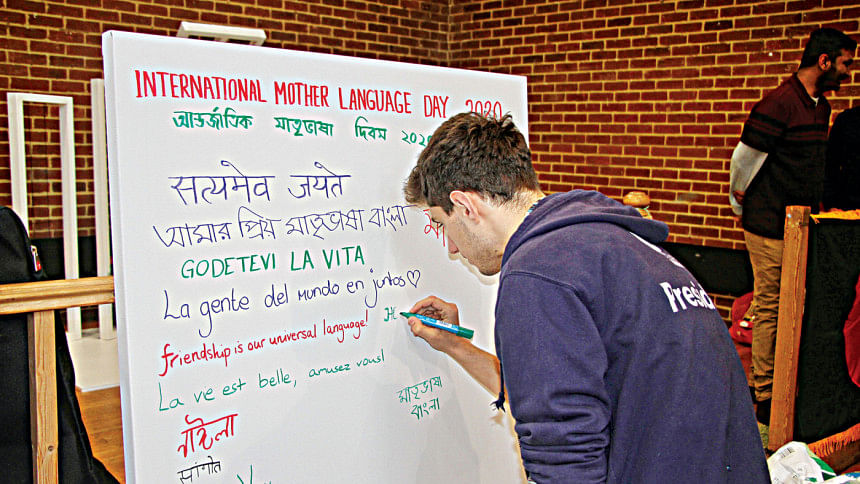 INTERNATIONAL MOTHER LANGUAGE DAY 2020
আন্তর্জাতিক মাতৃভাষা দিবস ২০২০
सत्यमेव जयते
আমার প্রিয় মাতৃভাষা বাংলা
GODETEVI LA VITA
La gente del mundo en juntos♡
friendship is our universal language!
La vie est belle, amusez vous!
মাতৃভাষা
বাংলা
Presid